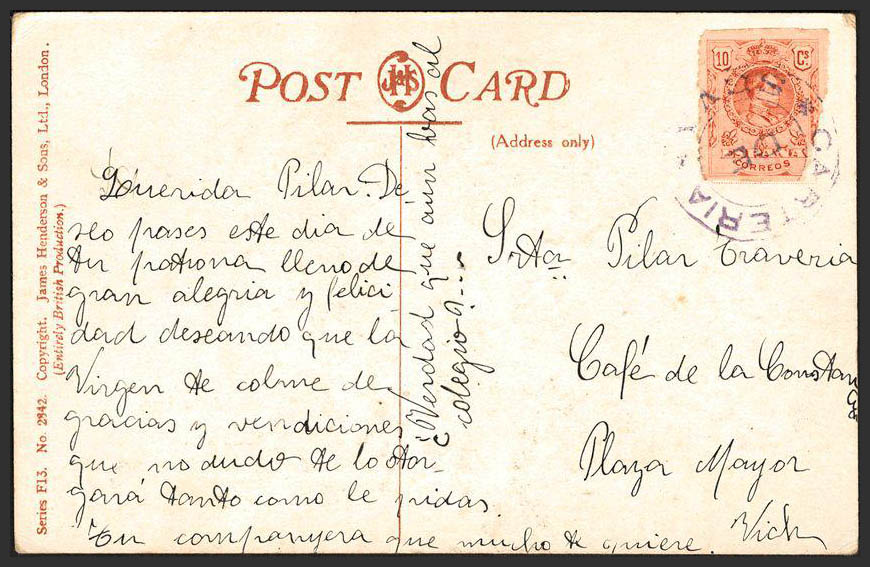 POST CARD
JH&S
(Address only)
10 Cs
CORREOS
CARTERIA
Series F13. No. 2842. Copyright. James Henderson & Sons, Ltd., London.
(Entirely British Production.)
Querida Pilar. De
seo pases este dia de
tu patrona lleno de
gran alegria y felici
dad deseando que la
Virgen te colme de
gracias y vendiciones
que no dudo te lo otor-
gará tanto como le pidas.
Tu companyera que mucho te quiere.
¿Verdad que aún vas al
colegio?...
Srta. Pilar Traveria
Café de la Constan
Plaza Mayor
Vich